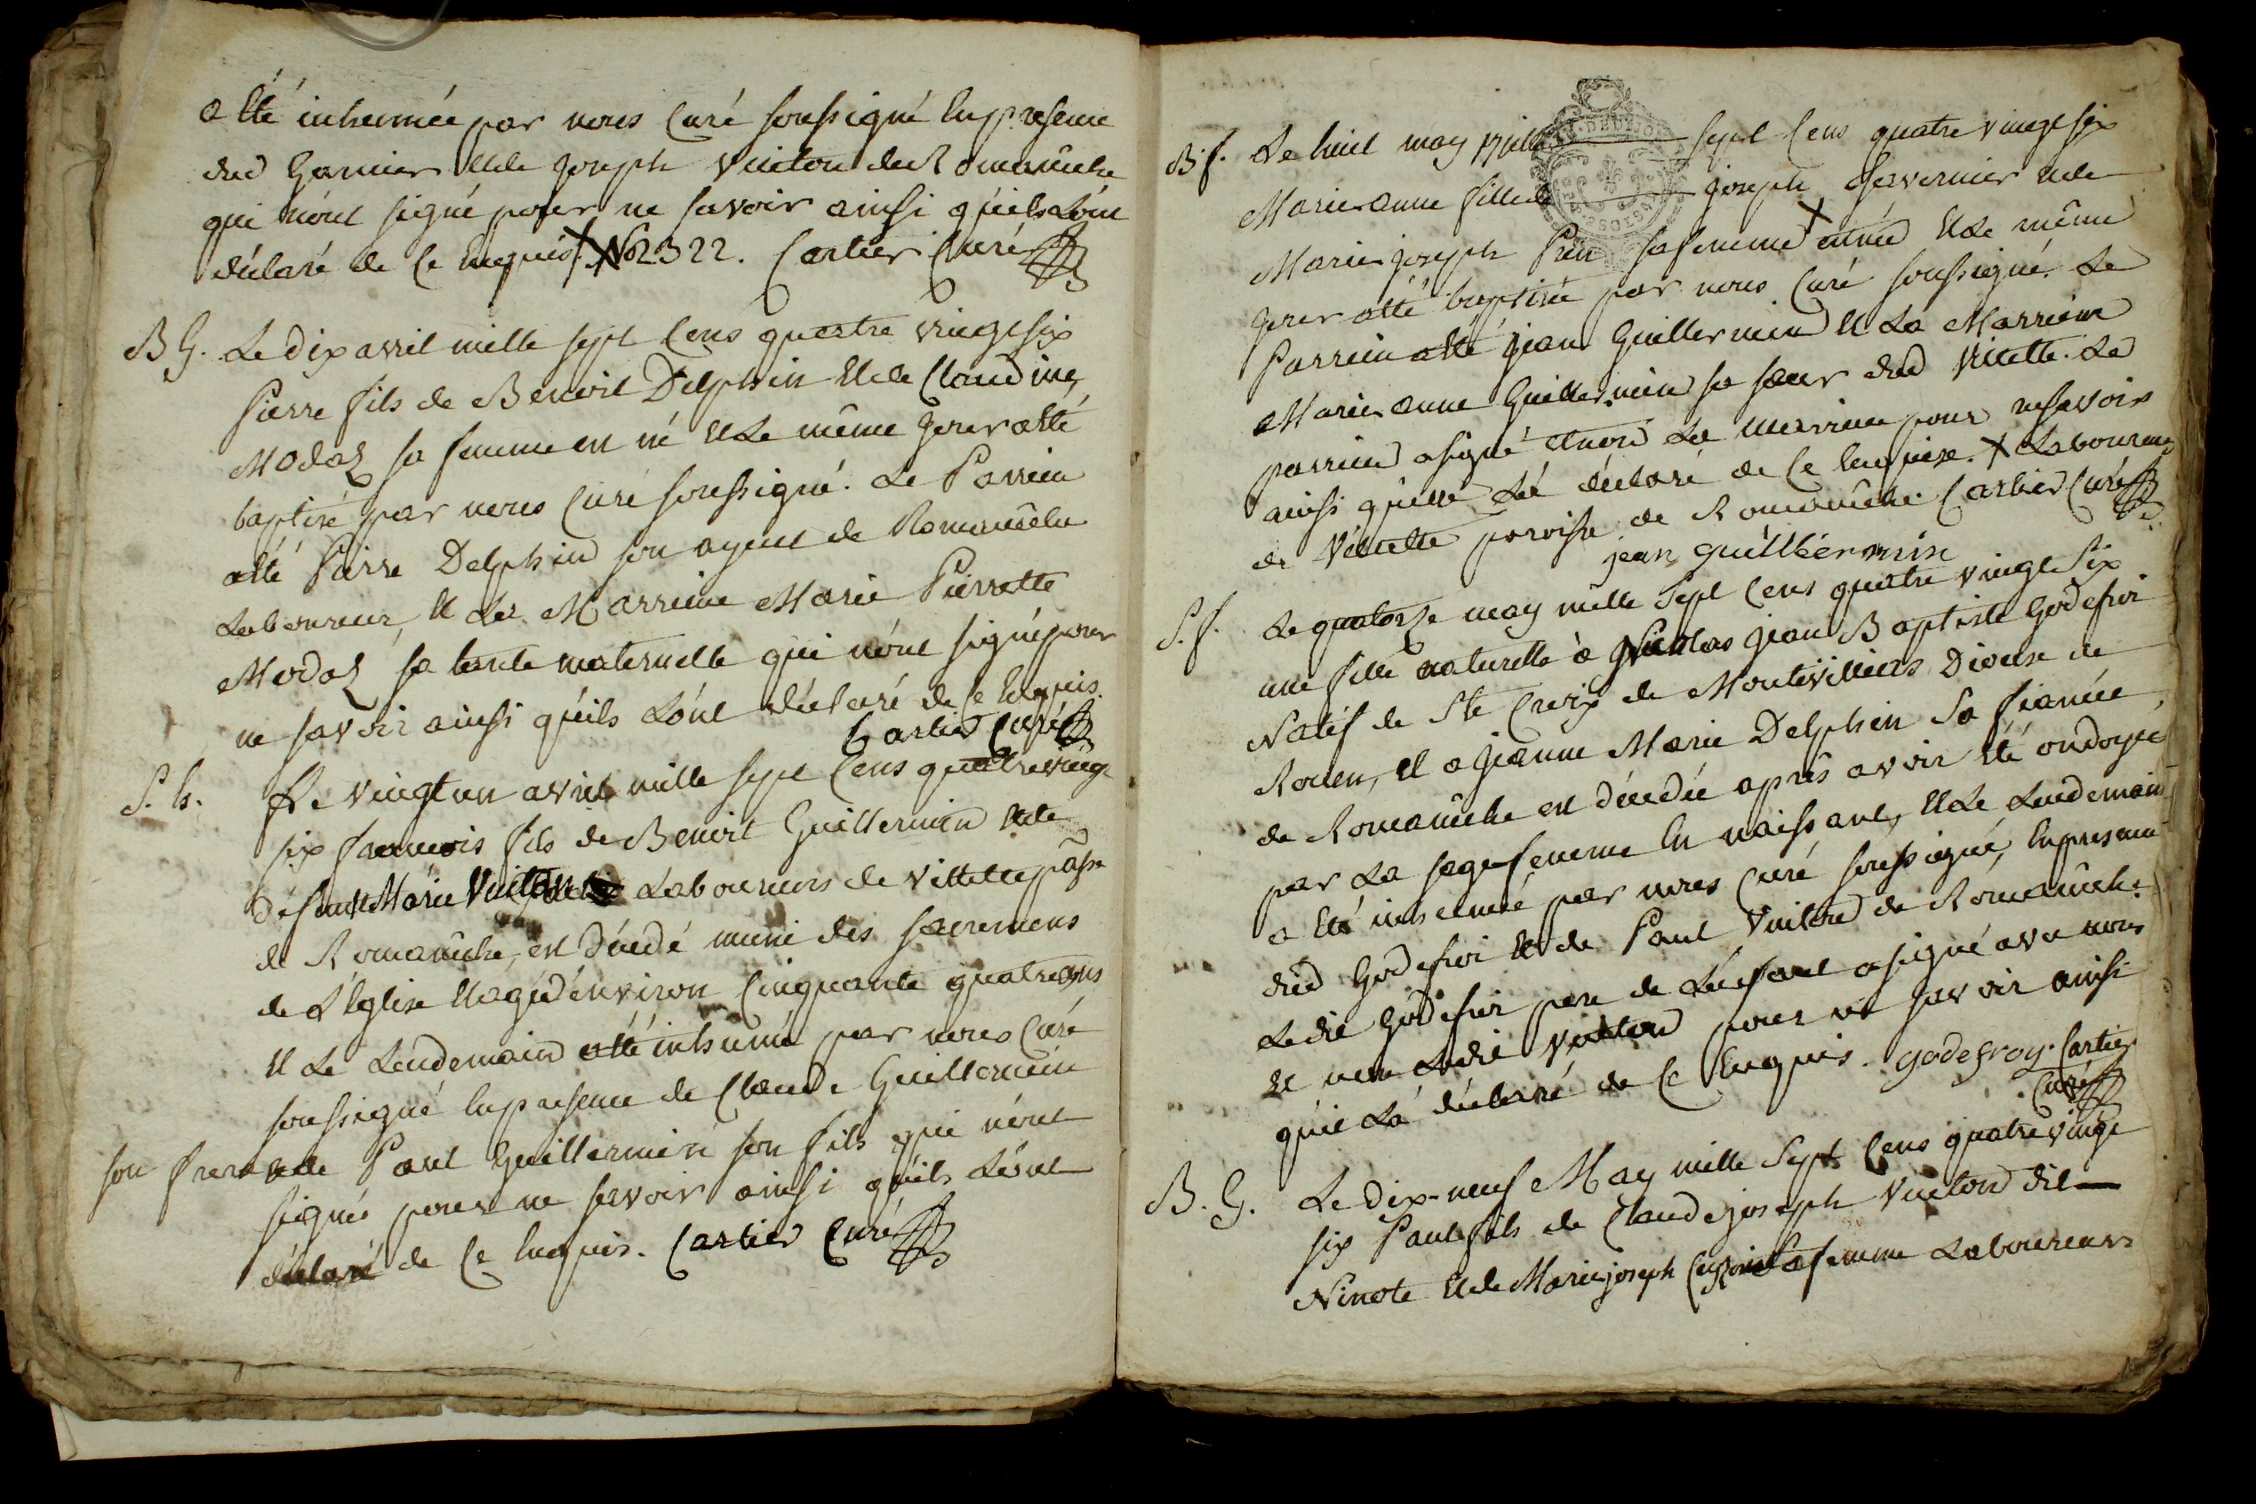 a Eté inhumée par nous Curé soussigné En presence
dud Garnier Et de joseph Vuiton de Romanêche
qui n'ont signé pour ne savoir ainsi qu'ils L'ont
déclaré de Ce Enquis. X N° 2322. Cartier Curé
B G. Le dix avril mille sept Cens quatre vingt six
Pierre fils de Benoit Delphin Et de Claudine
Modaz sa femme en né Et Le même jour a Eté
baptisé par nous Curé soussigné. Le Parrein
a Eté Pierre Delphin son ayeul de Romanêche
Laboureur, Et La Marreine Marie Pierrette
Modaz sa tante maternelle qui n'ont signé pour
ne savoir ainsi qu'ils L'ont déclaré de Ce Enquis.
Cartier Curé
S. h. Le vingt un avril mille sept Cens quatre vingt
six francois fils de Benoit Guillermin Et de
défunte Marie Vuiton Laboureurs de Villette pāsse
de Romanêche, est décédé muni des sacremens
de L'Eglise Et agé d'environ Cinquante quatre ans
Et Le Lendemain a Eté inhumé par nous Curé
soussigné En presence de Claude Guillermin
son frere Et de Paul Guillermin son fils qui n'ont
signé pour ne savoir ainsi qu'ils L'ont
déclaré de Ce Enquis. Cartier Curé
B. f. Le huit may mille sept Cens quatre vingt six
Marie anne fille de joseph Gavernier Et de
Marie joseph sa femme X est née Et Le même
jour a Eté baptisée par nous Curé soussigné. Le
Parrein a Eté jean Guillermin Et La Marreine
Marie anne Guillermin sa sœur dud Villette. Le
parrein a signé Et non La marreine pour ne savoir
ainsi qu'elle L'a déclaré de Ce Enquise. X Laboureurs
de Villette paroisse de Romanêche. Cartier Curé
jean guillermin
S. f. Le quatorze may mille Sept Cens quatre vingt Six
une fille naturelle à Nicolas jean Baptiste Godefroi
Natif de Ste Croix de Montivilliers Diocese de
Rouen, Et a jeanne Marie Delphin Sa fiancée
de Romanêche est décédée après avoir Eté ondoyée
par La sage femme En naissant, Et Le Lendemain
a Eté inhumée par nous Curé soussigné, En presence
dud Godefroi Et de Paul Vuiton de Romanêche.
Ledit Godefroi pere de L'enfant a signé avec nous
Et non Ledit Vuiton pour ne savoir ainsi
qu'il L'a déclaré de Ce Enquis. godefroy. Cartier
Curé
B. G. Le Dix-neuf May mille Sept Cens quatre vingt
six Paul fils de Claude joseph Vuiton dit
Ninote Et de Marie joseph sa femme Laboureurs